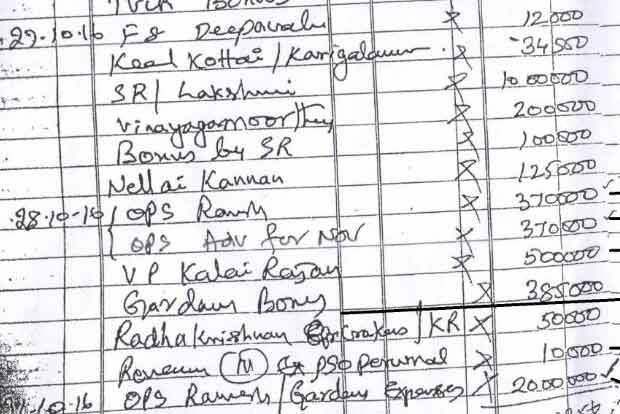 27.10.16 FS Deepavali X 12000
Kottai / X 34550
SR / Lakshmi X 1000000
Vinayagamoorthy X 200000
Bonus by SR X 100000
Nellai Kannan X 125000
28.10.16 OPS Ramesh X 370000
OPS Adv for Nov X 370000
VP Kalai Rajan X 500000
Gardens Bonus X 385000
Radhakrishnan / KR X 50000
PSO personal X 10000
.10.16 OPS Ramesh / Gardens Expenses X 2000000